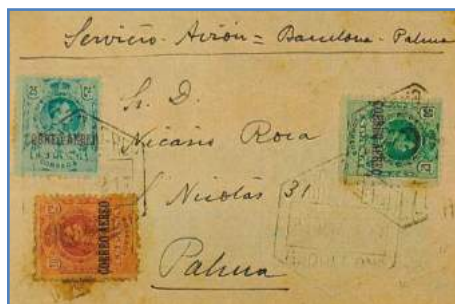 Servicio Avión = Barcelona - Palma
Sr. D.
Nicasio Roca
S. Nicolás 31
Palma
CORREO AEREO
CORREO AEREO
CORREO AEREO
25
25
50
BARCELONA